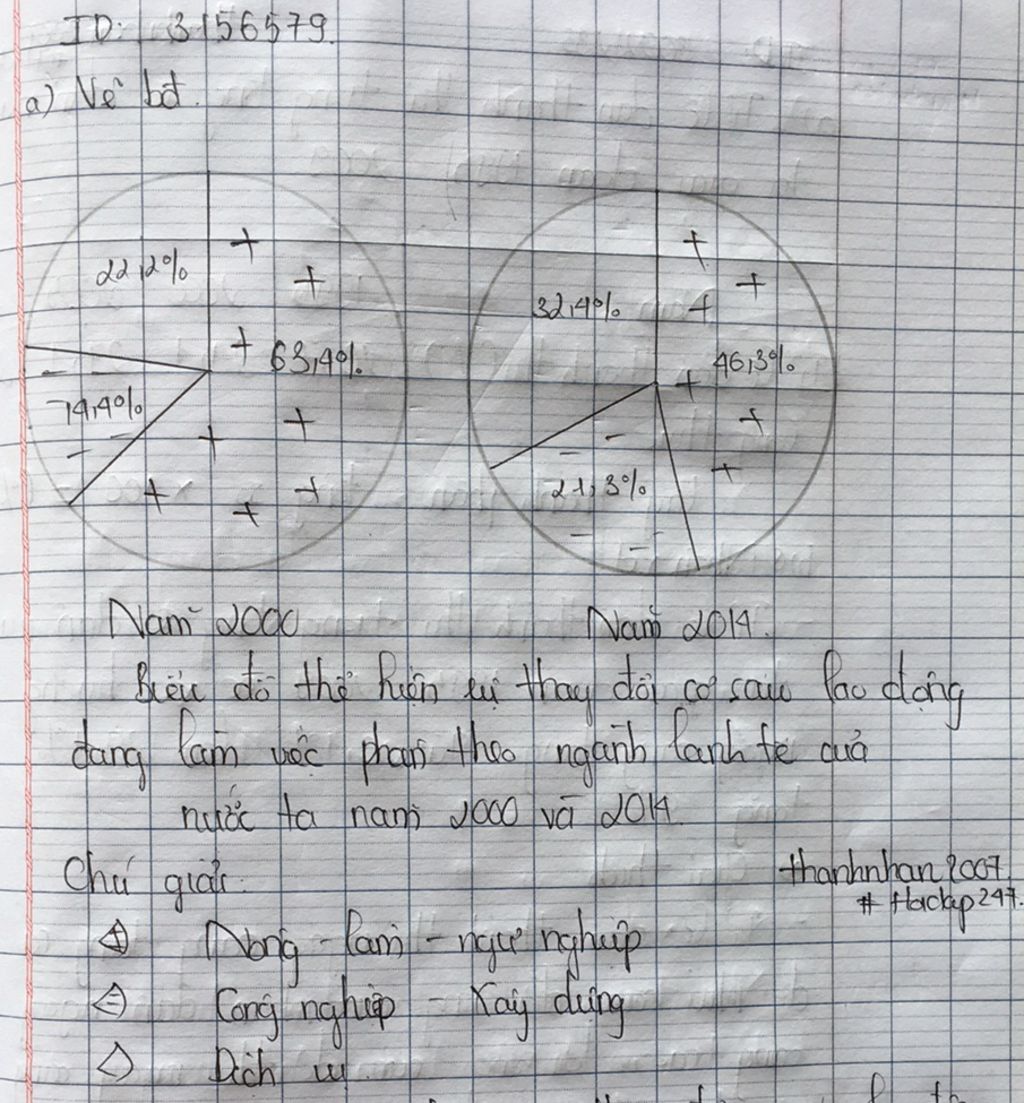 ID: 3156579.
a) Vẽ bđ.
22,2%
63,4%
14,4%
32,4%
46,3%
21,3%
Năm 2000
Năm 2014.
Biểu đồ thể hiện sự thay đổi cơ cấu lao động
đang làm việc phân theo ngành kinh tế của
nước ta năm 2000 và 2014.
Chú giải:
Nông - lâm - ngư nghiệp
Công nghiệp - Xây dựng
Dịch vụ.
thanhnhan2007.
# Hoidap247.